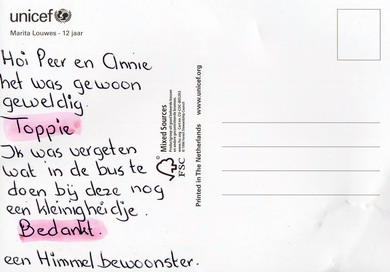 unicef
Marita Louwes - 12 jaar
Hoi Peer en Annie
het was gewoon
geweldig.
Toppie
Ik was vergeten
wat in de bus te
doen bij deze nog
een kleinigheidje.
Bedankt.
een Himmel bewoonster.
Mixed Sources
FSC
Printed in The Netherlands
www.unicef.org